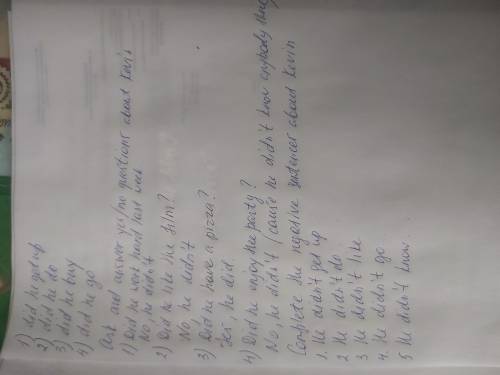 1) did he get up
2) did he do
3) did he buy
4) did he go
Ask and answer yes/no questions about Kevin's
1) Did he work hard last week
No he didn't
2) Did he like the film?
No, he didn't
3) Did he have a pizza?
Yes he did
4) Did he enjoy the party?
No, he didn't (cause he didn't know enybody
Complete the negative sentences about Kevin
1. He didn't get up
2 He didn't do
3 He didn't like
4. He didn't go
5. He didn't know.